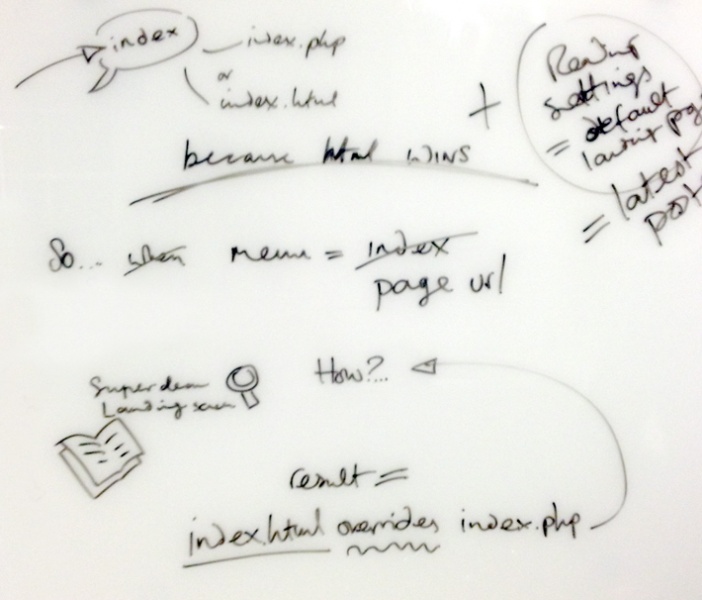 index
index.php
or
index.html
because html WINS
+
Reading
settings
= default
landing page
= latest
post
So... when menu = index
page url
How?...
Super clean
Landing screen
result =
index.html overrides index.php